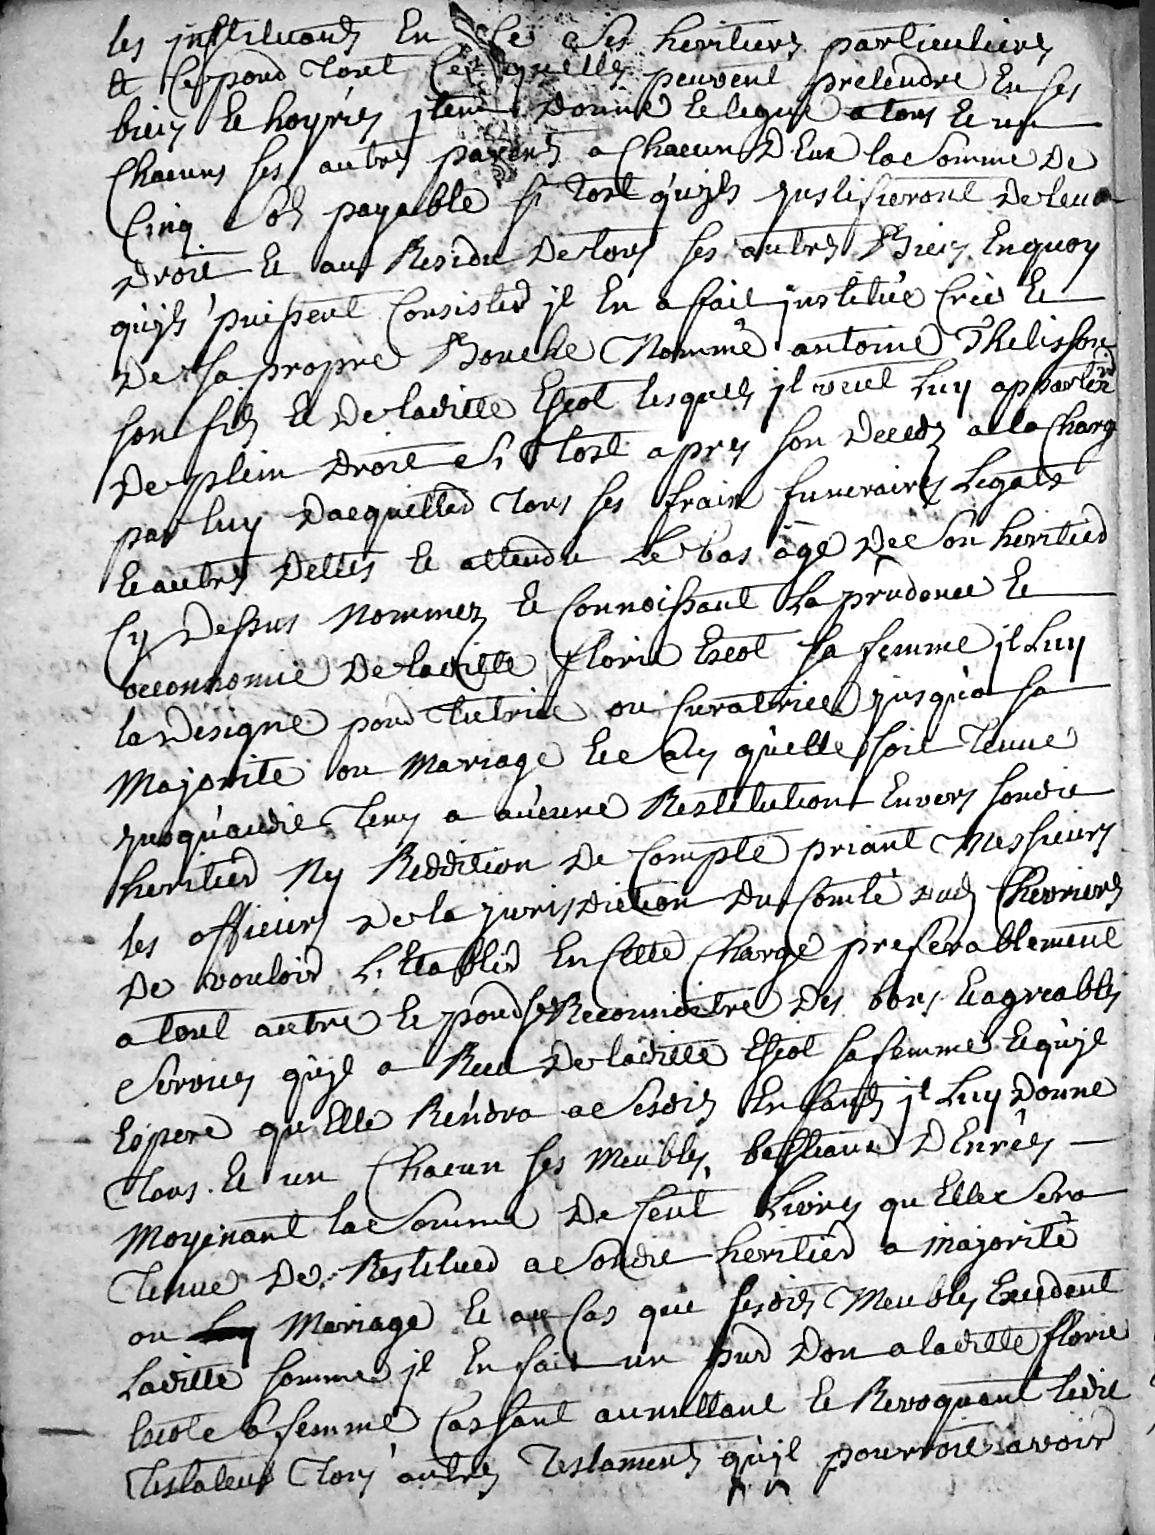 les instituants En Ce Ses heritiers particuliers
et Ce pour tout Ce quelles peuvent pretendre En ses
biens et hoyries jtem Donne et legue a tous et un
Chacuns ses autres parents a Chacun D'Eux la somme De
Cinq sols payable si tost quijls justifieront De leur
Droit et au Residu De tous ses autres Biens Enquoy
quijls puissent Consister jl En a fait institué Créé et
De sa propre Bouche Nommé antoine Thelisson
son fils et De laditte Escot lesquels jl veut Luy appartenir
De plein Droit Si tost apres son Deceds a la Charge
par luy Dacquitter tous ses frais funeraires Legats
et autres Dettes et attendu Le bas age De Son heritier
Cy Dessus Nommez et Connoissant La prudence et
oeconnomie De laditte florie Escot sa femme jl Luy
la Designe pour tutrice ou Curatrice jusqu'a sa
Majorite ou Mariage et Sans qu'elle soit tenue
jusqu'audit tems a aucune Restitution Envers sondit
heritier Ny Reddition De Compte priant Messieurs
les officiers De la jurisdiction Du Comté Dud Chevrieres
De vouloir L'Etablir En Cette Charge preferablement
a tout autre et pour Reconnoitre Des bons et agreables
Services qu'jl a Reçu De laditte Escot sa femme et qu'jl
Espere qu'Elle Rendra a Sesdits Enfants jl Luy Donne
tous et un Chacun ses Meubles, bestiaux Denrées
Moyenant la Somme De Cent Livres qu'Elle Sera
tenue De Restituer a Sondit heritier a Majorité
ou Mariage et au Cas que sesdits Meubles Excedent
Laditte somme jl En fait un pur Don a laditte florie
Escot Sa femme Cassant annullant et Revoquant ledit
Testateur tous autres Testaments qu'jl pourroit avoir